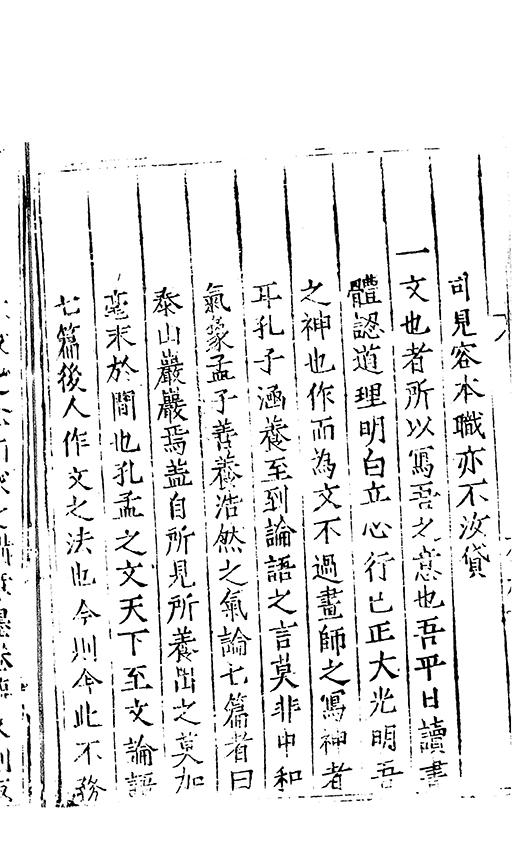 司見容本職亦不汝貸
一文也者所以寫吾之意也吾平日讀書
體認道理明白立心行已正大光明吾
之神也作而為文不過畫師之寫神者
耳孔子涵養至到論語之言莫非中和
氣象孟子善養浩然之氣論七篇者曰
泰山巖巖焉盖自所見所養出之莫加
毫末於間也孔孟之文天下至文論語
七篇後人作文之法也今則舍此不務